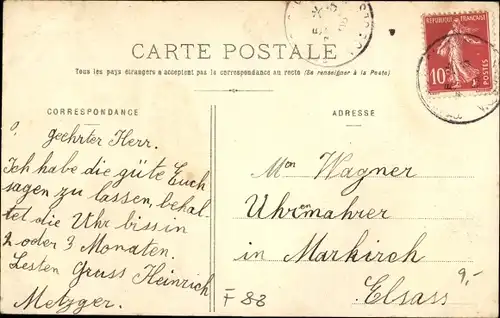 CARTE POSTALE
Tous les pays étrangers n'acceptent pas la correspondance au recto (Se renseigner à la Poste)
RÉPUBLIQUE FRANÇAISE
10c
POSTES
CORRESPONDANCE
ADRESSE
geehrter Herr.
Ich habe die güte Euch
sagen zu lassen, behal-
tet die Uhr bis in
2 oder 3 Monaten.
Besten Gruss Heinrich
Metzger.
Mon Wagner
Uhrenmahrer
in Markirch
Elsass
9,-
F 88